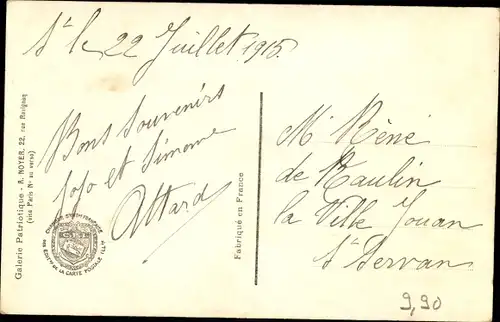 St le 22 Juillet 1915.
Bons Souvenirs
Jojo et Simone
Attard
Mr Réné
de Raulin
la Ville Jouan
St Servan
9,90
Galerie Patriotique - A. NOYER, 22, rue Ravignan
(visa Paris No au verso)
Fabriqué en France
CHAMBRE SYNDle FRANÇAISE
DES EDITrs DE LA CARTE POSTALE ILLée